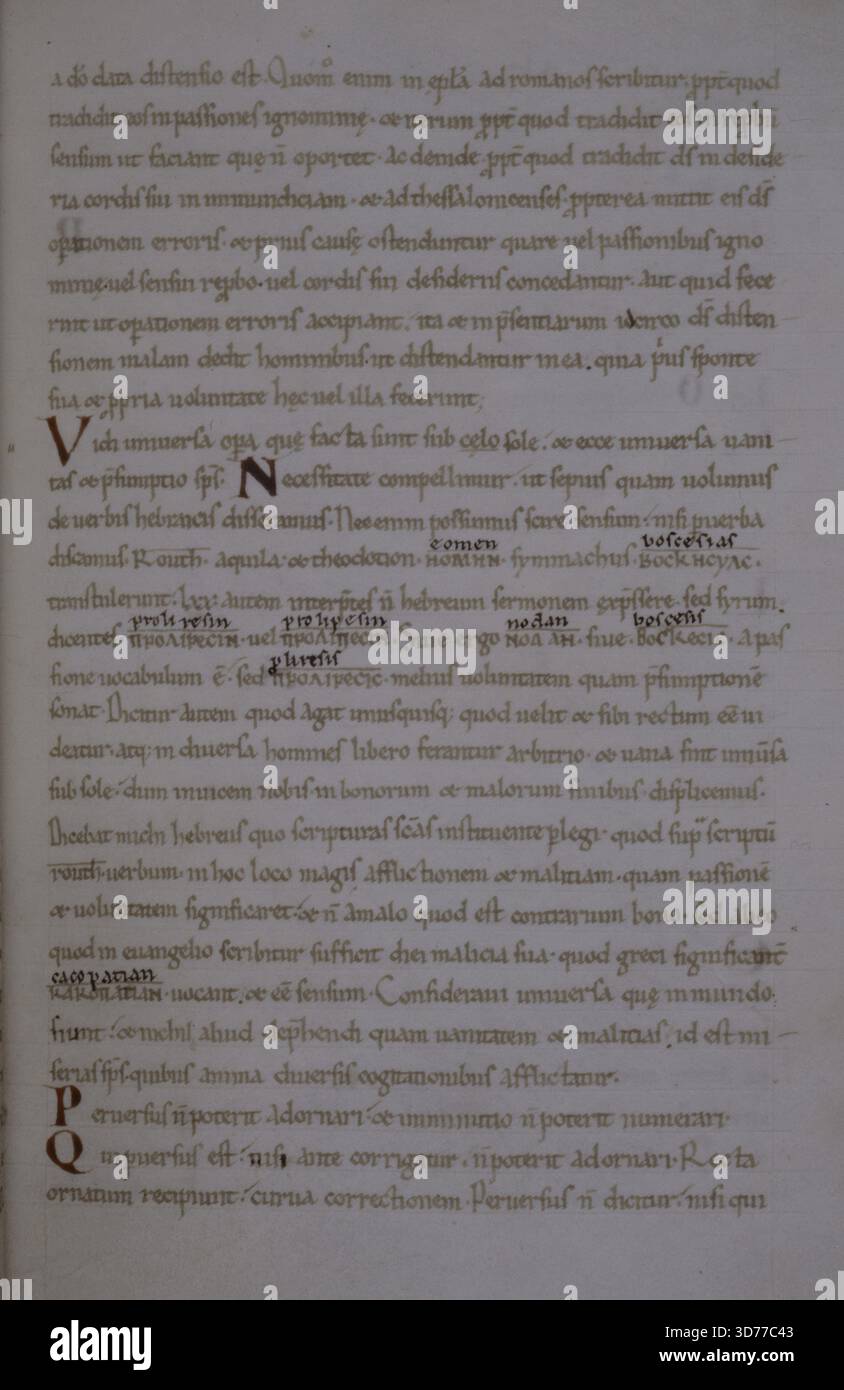 a dō data distensio est. Quom̄ enim in ep̄la ad romanos scribitur. ꝓpt̄ quod
tradidit eos in passiones ignominię. & iterum ꝓpt̄ quod tradidit
sensum ut faciant quę n̄ oportet. ac deinde ꝓpt̄ quod tradidit d̄s in deside
ria cordis sui in inmundiciam. & ad thessalonicenses. ꝓpterea mittit eis d̄s
oꝑationem erroris. & prius causę ostenduntur quare uel passionibus igno
minię. uel sensui reꝓbo. uel cordis sui desideriis concedantur. aut quid fece
rint ut oꝑationem erroris accipiant. ita & in p̄sentiarum idcirco d̄s disten
sionem malam dedit hominibus. ut distendantur in ea. quia p̍us sponte
sua & ꝓpria uoluntate hęc uel illa fecerunt;
Vidi uniuersa oꝑa quę facta sunt sub cęlo sole. & ecce uniuersa uani
tas & p̄sumptio sp̄s. Necessitate compellimur. ut sepius quam uolumus
de uerbis hebraicis disseramus. Nec enim possumus scire sensum. nisi ꝑ uerba
eomen boscesias
discamus. Routh. aquila & theodotion. ΝΟΜΗΝ. symmachus. ΒΟCΚΗCΥΛC.
transtulerunt. lxx autem interp̄tes n̄ hebreum sermonem exp̄ssere. sed syrum.
proliresin prolipesin nodan boscesis
dicentes ΠΡΟΛΙΡΕCΙΝ. uel siue ergo ΝΟΔΑΝ. siue. ΒΟCΚΕCΙC. a pas
pliresis
sione uocabulum ē. sed ΠΡΟΛΙΡΕCΙC. melius uoluntatem quam p̄sumptionē
sonat. Dicitur autem quod agat unusquisq; quod uelit & sibi rectum eē ui
deatur. atq; in diuersa homines libero ferantur arbitrio. & uana sint uniu̅sa
sub sole. dum inuicem nobis in bonorum & malorum finibus displicemus.
Dicebat michi hebreus quo scripturas sc̄as instituente ꝑlegi. quod sup̄ scriptū
routh. uerbum. in hoc loco magis afflictionem & malitiam. quam passionē
& uoluntatem significaret. & n̄ a malo quod est contrarium bono
quod in euangelio scribitur sufficit diei malicia sua. quod greci significant̄
cacopatian
ΚΑΚΟΠΑΤΙΑΝ. uocant. & eē sensum. Consideraui uniuersa quę in mundo
fiunt. & nichil aliud dep̄hendi quam uanitatem & malitias. id est mi
serias sp̄s. quibus anima diuersis cogitationibus afflictatur.
Peruersus n̄ poterit adornari. & inminutio n̄ poterit numerari.
Qui ꝑuersus est. nisi ante corrigatur. n̄ poterit adornari. Recta
ornatum recipiunt. curua correctionem. Peruersus n̄ dicitur. nisi qui
alamy
alamy
Image ID: 3D77C43
www.alamy.com